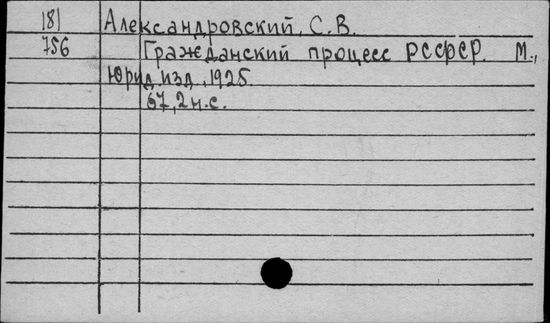 181 Александровский, С.В.
756 Гражданский процесс РСФСР. М.,
Юрид. изд., 1925.
67, 2 н.с.